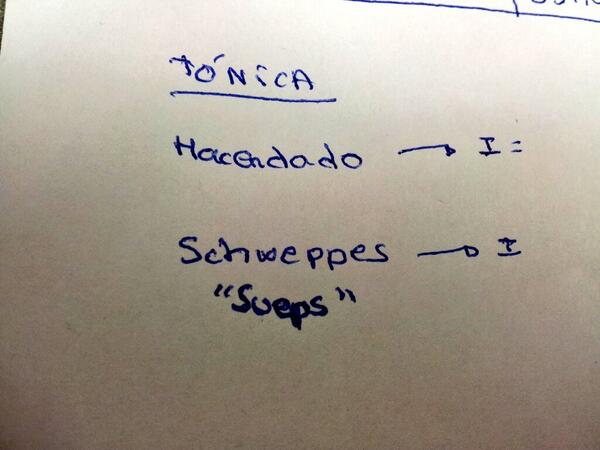 TÓNICA
Hacendado → I =
Schweppes → I
"Sueps"